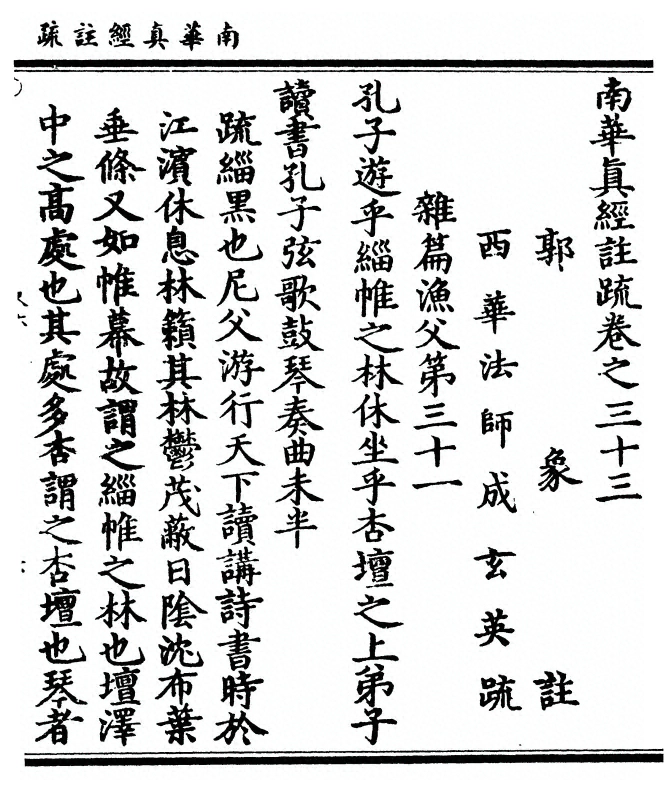 南華真經註疏
南華眞經註疏卷之三十三
郭象註
西華法師成玄英疏
雜篇漁父第三十一
孔子遊乎緇帷之林休坐乎杏壇之上弟子
讀書孔子弦歌鼓琴奏曲未半
疏緇黑也尼父游行天下讀講詩書時於
江濱休息林籟其林鬱茂蔽日陰沈布葉
垂條又如帷幕故謂之緇帷之林也壇澤
中之高處也其處多杏謂之杏壇也琴者